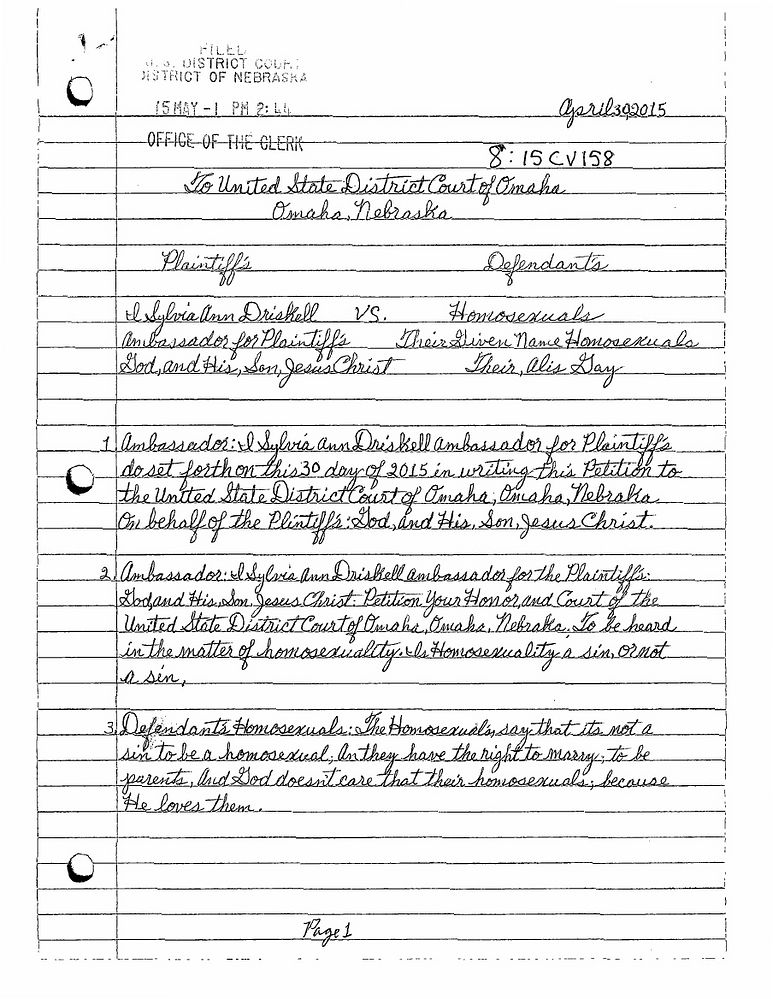 FILED
U.S. DISTRICT COURT
DISTRICT OF NEBRASKA
15 MAY -1 PM 2:44
April 30 2015
OFFICE OF THE CLERK
8:15CV158
To United State District Court of Omaha
Omaha, Nebraska
Plaintiff's Defendant's
I Sylvia Ann Driskell VS. Homosexuals
Ambassador for Plaintiff's Their Given Name Homosexuals
God, and His, Son, Jesus Christ Their, Alis Gay
1. Ambassador: I Sylvia Ann Driskell Ambassador for Plaintiff's
do set forth on this 30 day of 2015 in writing this Petition to
the United State District Court of Omaha, Omaha, Nebraka
On behalf of the Plintiff's: God, and His, Son, Jesus Christ.
2. Ambassador: I Sylvia Ann Driskell ambassador for the Plaintiff's:
God, and His, Son, Jesus Christ: Petition Your Honor, and Court of the
United State District Court of Omaha, Omaha, Nebraka. To be heard
in the matter of homosexuality. Is Homosexuality a sin, or not
a sin,
3. Defendant's Homosexuals: The Homosexuals, say that its not a
sin to be a homosexual; An they have the right to marry; to be
parents, And God doesnt care that their homosexuals; because
He loves them.
Page 1